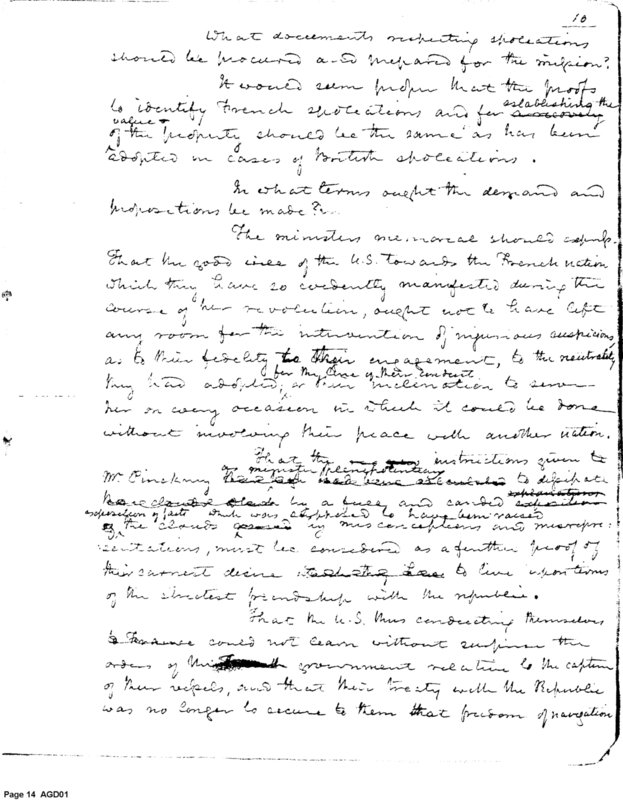 10
What documents respecting spoliations
should be procured and prepared for the mission?
It would seem proper that the proofs
to identify French spoliations and for establishing the
value
of the property should be the same as has been
adopted in cases of British spoliations.
In what terms ought the demand and
propositions be made?
The ministers memorial should
That the good will of the U.S. towards the French nation
which they have so evidently manifested during the
course of her revolution, ought not to have left
any room for the intervention of injurious suspicions
as to their fidelity to their engagement, to the neutrality
for the line of their conduct
they had adopted, or their inclination to serve
her on every occasion in which it could be done
without involving their peace with another nation.
That the instructions given to
Mr Pinckney as minister plenipotentiary to dissipate
by a full and candid
exposition of facts which was supposed to have been raised
the clouds by misconceptions and misrepre-
sentations, must be considered as a further proof of
their earnest desire to live upon terms
of the strictest friendship with the republic.
That the U.S. thus conducting themselves
to France could not learn without surprise the
orders of the government relative to the capture
of their vessels, and that their treaty with the Republic
was no longer to secure to them that freedom of navigation
Page 14 AGD01